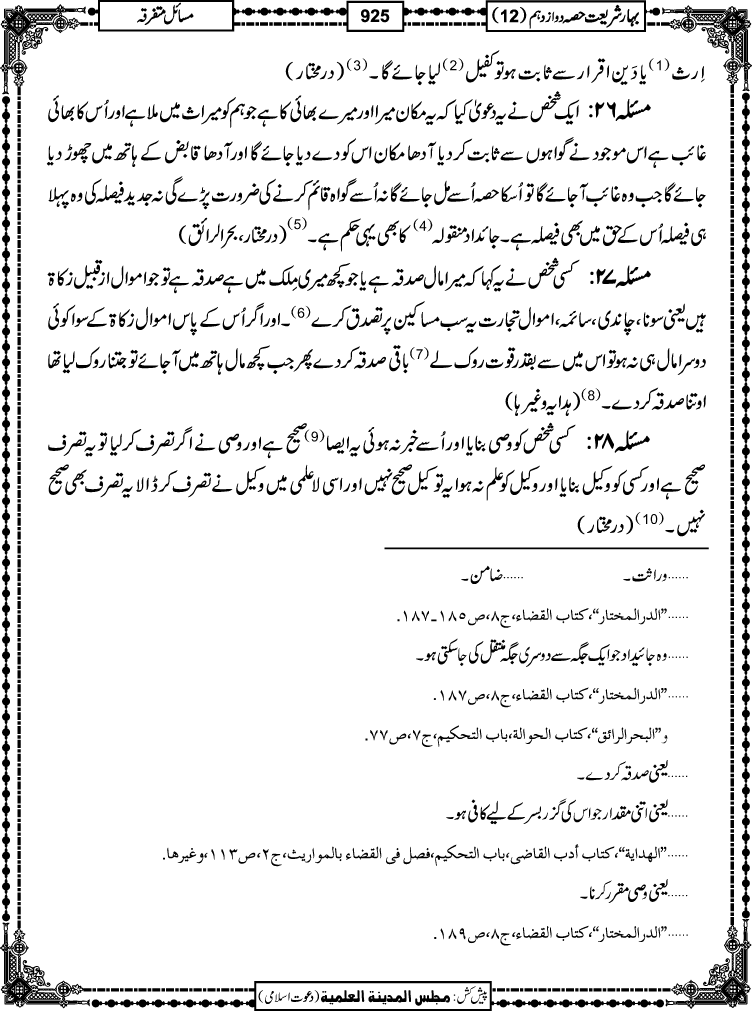 بہارِشریعت حصہ دوازدہم (12)
925
مسائل متفرقہ
اِرث (1) یا دَین اقرار سے ثابت ہو تو کفیل (2) لیا جائے گا۔ (3) (درمختار)
مسئلہ ۲۶: ایک شخص نے یہ دعویٰ کیا کہ یہ مکان میرا اور میرے بھائی کا ہے جو ہم کو میراث میں ملا ہے اور اُس کا بھائی
غائب ہے اس موجود نے گواہوں سے ثابت کر دیا آدھا مکان اس کو دے دیا جائے گا اور آدھا قابض کے ہاتھ میں چھوڑ دیا
جائے گا جب وہ غائب آجائے گا تو اُسکا حصہ اُسے مل جائے گا نہ اُسے گواہ قائم کرنے کی ضرورت پڑے گی نہ جدید فیصلہ کی وہ پہلا
ہی فیصلہ اُس کے حق میں بھی فیصلہ ہے۔ جائداد منقولہ (4) کا بھی یہی حکم ہے۔ (5) (درمختار، بحرالرائق)
مسئلہ ۲۷: کسی شخص نے یہ کہا کہ میرا مال صدقہ ہے یا جو کچھ میری مِلک میں ہے صدقہ ہے تو جو اموال از قبیل زکاۃ
ہیں یعنی سونا، چاندی، سائمہ، اموالِ تجارت یہ سب مساکین پر تصدق کرے (6)۔ اور اگر اُس کے پاس اموال زکاۃ کے سوا کوئی
دوسرا مال ہی نہ ہو تو اس میں سے بقدر قوت روک لے (7) باقی صدقہ کردے پھر جب کچھ مال ہاتھ میں آجائے تو جتنا روک لیا تھا
اوتنا صدقہ کردے۔ (8) (ہدایہ وغیرہا)
مسئلہ ۲۸: کسی شخص کو وصی بنایا اور اُسے خبر نہ ہوئی یہ ایصا (9) صحیح ہے اور وصی نے اگر تصرف کرلیا تو یہ تصرف
صحیح ہے اور کسی کو وکیل بنایا اور وکیل کو علم نہ ہوا یہ توکیل صحیح نہیں اور اسی لاعلمی میں وکیل نے تصرف کر ڈالا یہ تصرف بھی صحیح
نہیں۔ (10) (درمختار)
......وراثت۔ ......ضامن۔
......”الدرالمختار“، کتاب القضاء، ج۸، ص۱۸۵۔۱۸۷.
......وہ جائیداد جو ایک جگہ سے دوسری جگہ منتقل کی جاسکتی ہو۔
......”الدرالمختار“، کتاب القضاء، ج۸، ص۱۸۷.
و ”البحرالرائق“، کتاب الحوالة، باب التحکیم، ج۷، ص۷۷.
......یعنی صدقہ کردے۔
......یعنی اتنی مقدار جو اس کی گزر بسر کے لیے کافی ہو۔
......”الهداية“، کتاب أدب القاضی، باب التحکیم، فصل فی القضاء بالمواریث، ج۲، ص۱۱۳، وغیرها.
......یعنی وصی مقرر کرنا۔
......”الدرالمختار“، کتاب القضاء، ج۸، ص۱۸۹.
پیش کش: مجلس المدینة العلمیة (دعوت اسلامی)